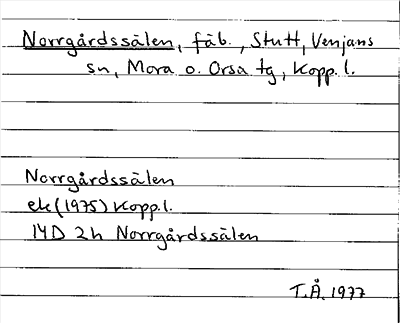 Norrgårdssälen, fäb., Stutt, Venjans
sn, Mora o. Orsa tg, Kopp. l.
Norrgårdssälen
ek (1975) Kopp. l.
14D 2h Norrgårdssälen
T.Å. 1977